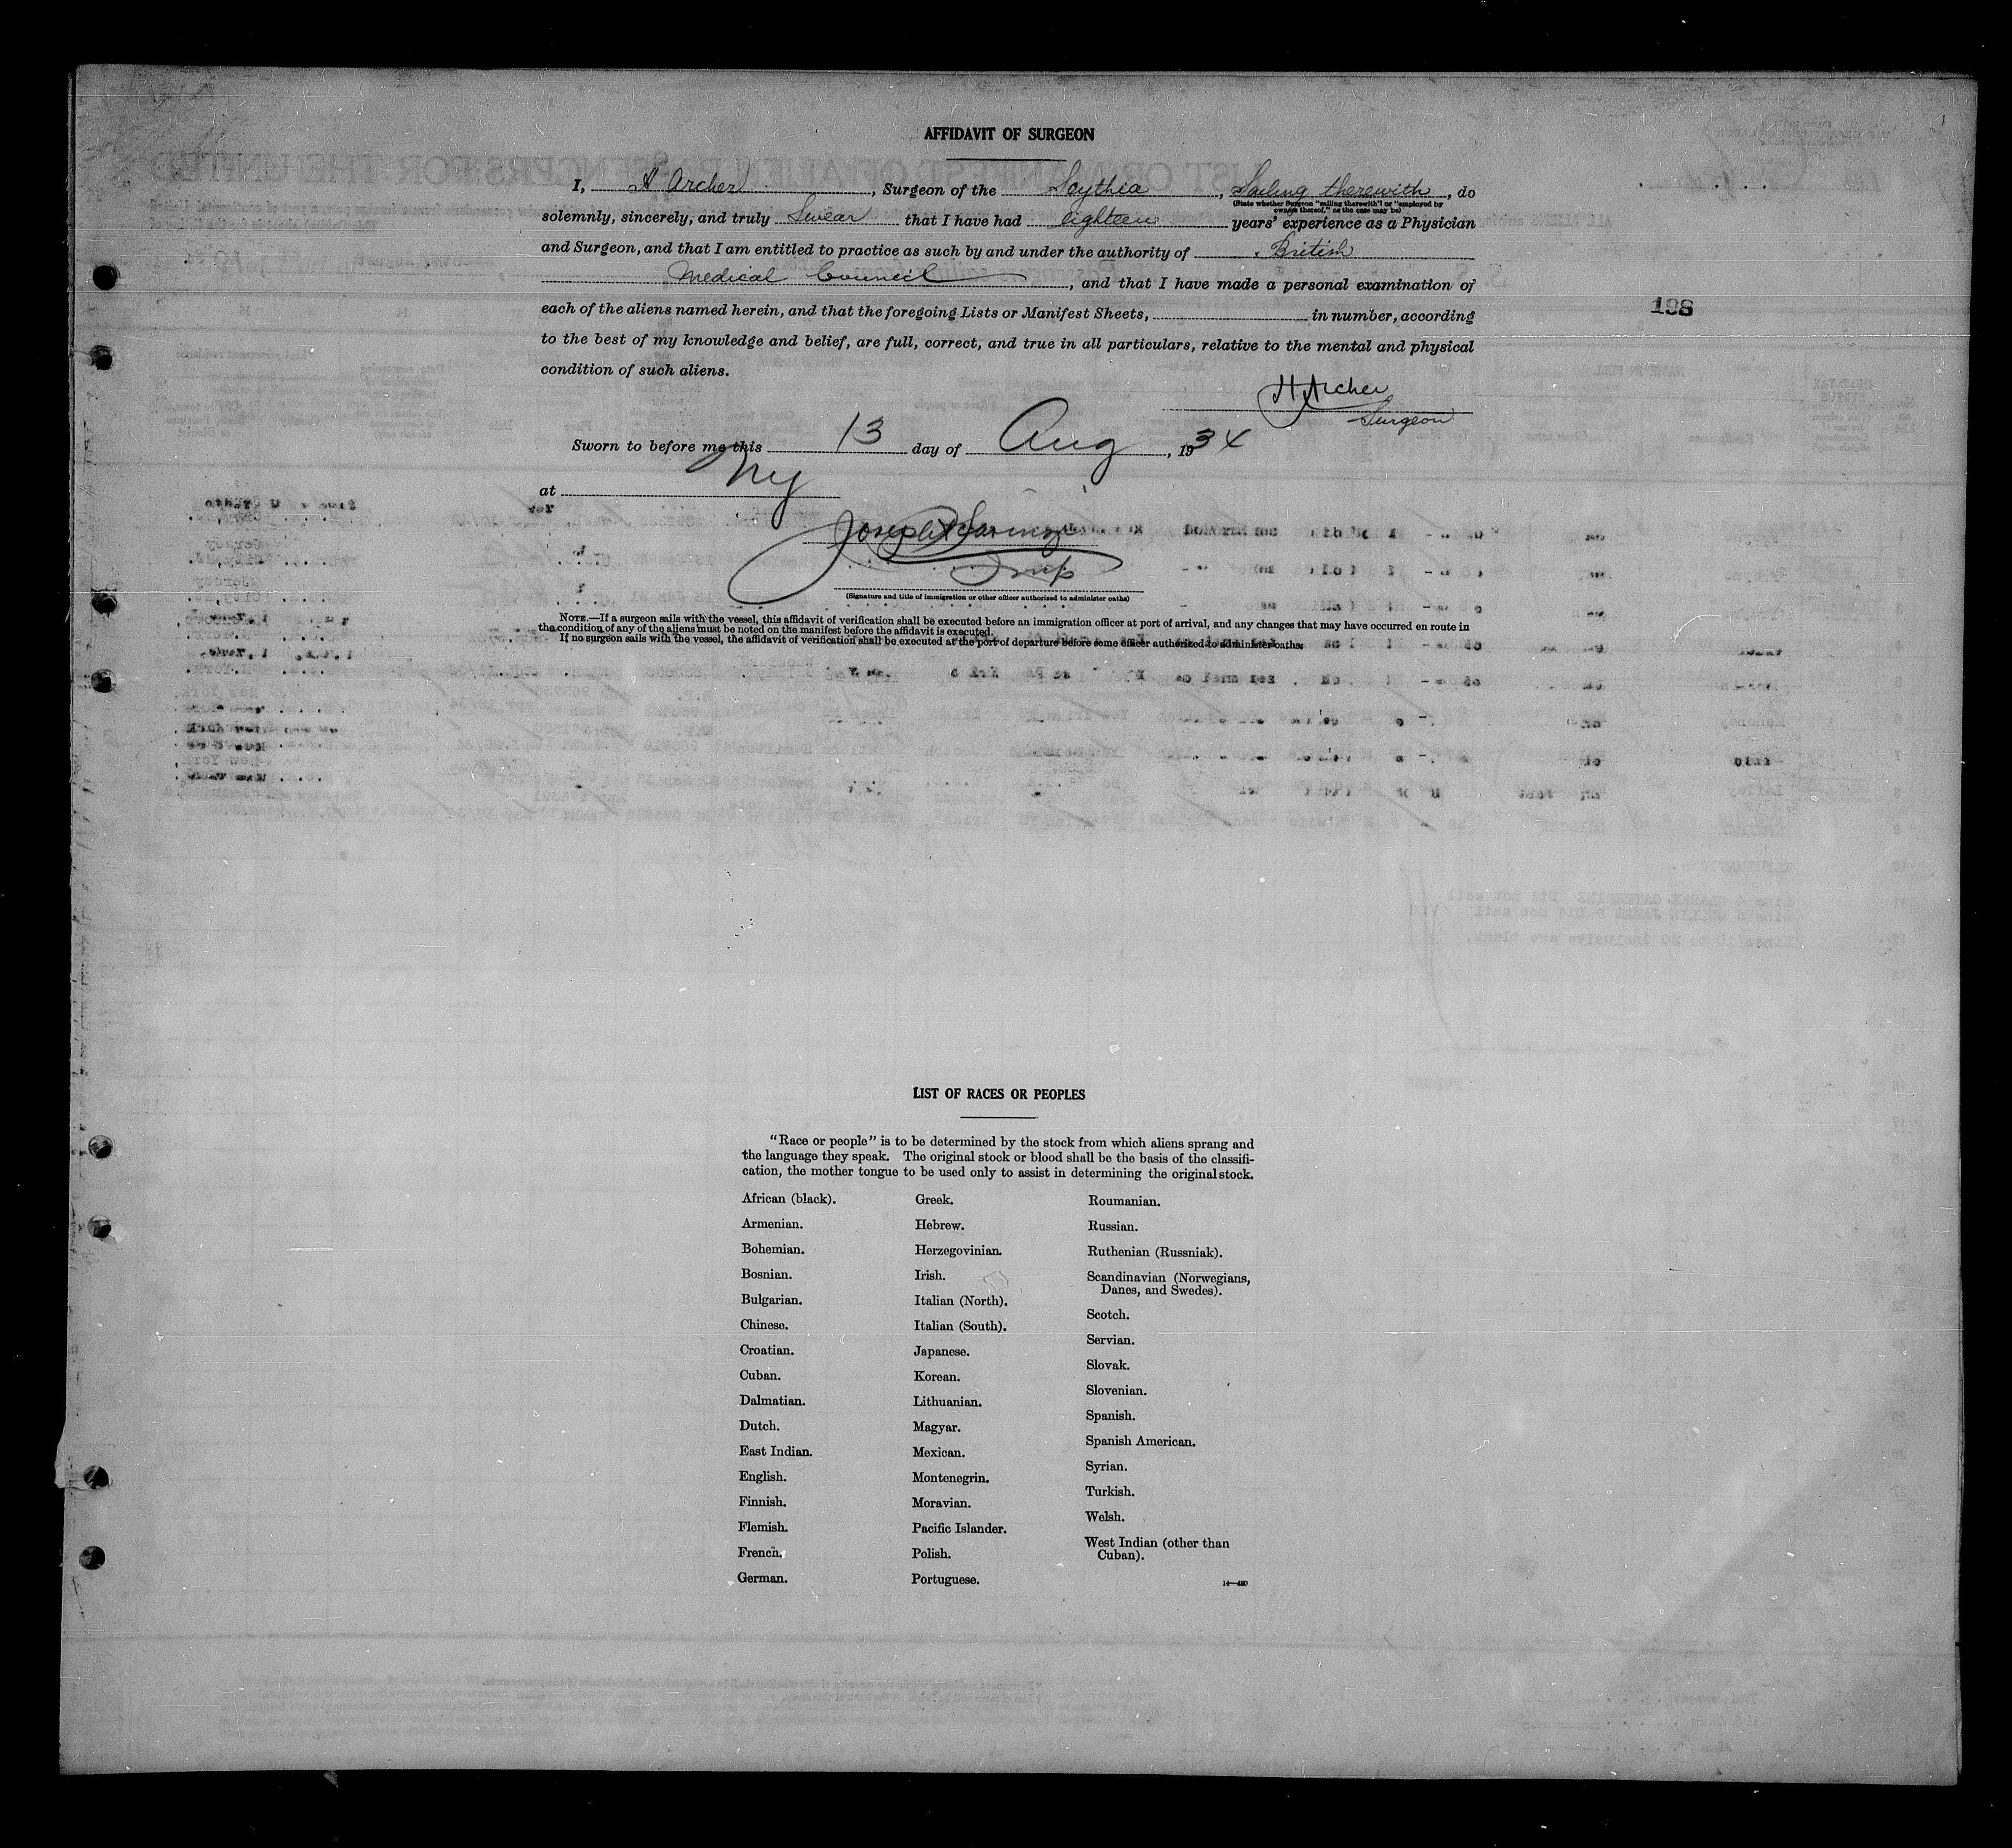 AFFIDAVIT OF SURGEON
I, H Archer, Surgeon of the Scythia, Sailing therewith, do
(State whether Surgeon "sailing therewith" or "employed by
owners thereof," as the case may be)
solemnly, sincerely, and truly Swear that I have had eighteen years' experience as a Physician
and Surgeon, and that I am entitled to practice as such by and under the authority of British
Medical Council, and that I have made a personal examination of
198
each of the aliens named herein, and that the foregoing Lists or Manifest Sheets, in number, according
to the best of my knowledge and belief, are full, correct, and true in all particulars, relative to the mental and physical
condition of such aliens.
H Archer
Surgeon
Sworn to before me this 13 day of Aug, 1934
at NY
Joseph
Insp
(Signature and title of immigration or other officer authorized to administer oaths)
NOTE.—If a surgeon sails with the vessel, this affidavit of verification shall be executed before an immigration officer at port of arrival, and any changes that may have occurred en route in
the condition of any of the aliens must be noted on the manifest before the affidavit is executed.
If no surgeon sails with the vessel, the affidavit of verification shall be executed at the port of departure before some officer authorized to administer oaths.
LIST OF RACES OR PEOPLES
"Race or people" is to be determined by the stock from which aliens sprang and
the language they speak. The original stock or blood shall be the basis of the classifi-
cation, the mother tongue to be used only to assist in determining the original stock.
African (black).
Armenian.
Bohemian.
Bosnian.
Bulgarian.
Chinese.
Croatian.
Cuban.
Dalmatian.
Dutch.
East Indian.
English.
Finnish.
Flemish.
French.
German.
Greek.
Hebrew.
Herzegovinian.
Irish.
Italian (North).
Italian (South).
Japanese.
Korean.
Lithuanian.
Magyar.
Mexican.
Montenegrin.
Moravian.
Pacific Islander.
Polish.
Portuguese.
Roumanian.
Russian.
Ruthenian (Russniak).
Scandinavian (Norwegians,
Danes, and Swedes).
Scotch.
Servian.
Slovak.
Slovenian.
Spanish.
Spanish American.
Syrian.
Turkish.
Welsh.
West Indian (other than
Cuban).
14—480